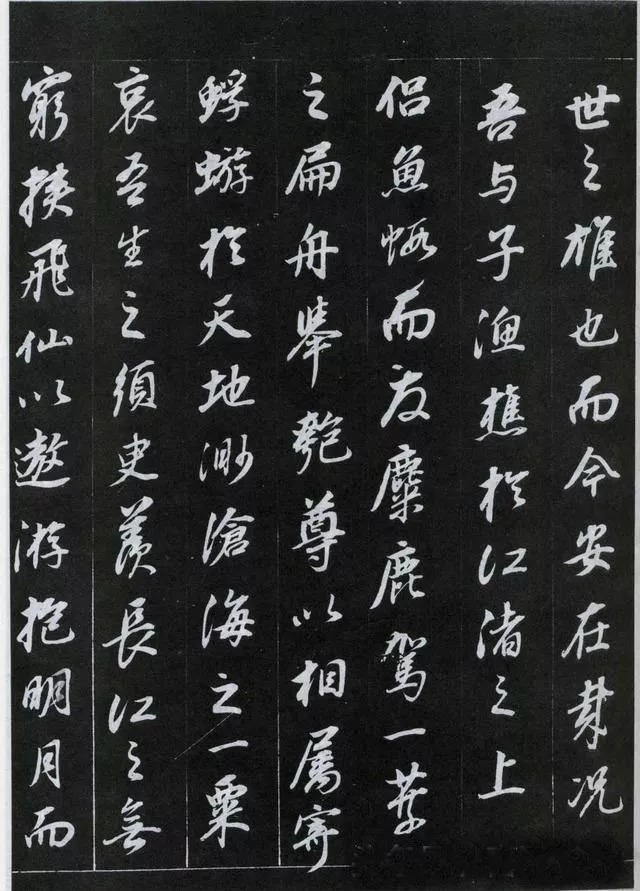 世之雄也而今安在哉况
吾与子渔樵於江渚之上
侣魚蝦而友麋鹿駕一葉
之扁舟舉匏尊以相属寄
蜉蝣於天地渺滄海之一粟
哀吾生之須臾羨長江之無
窮挾飛仙以遨游抱明月而